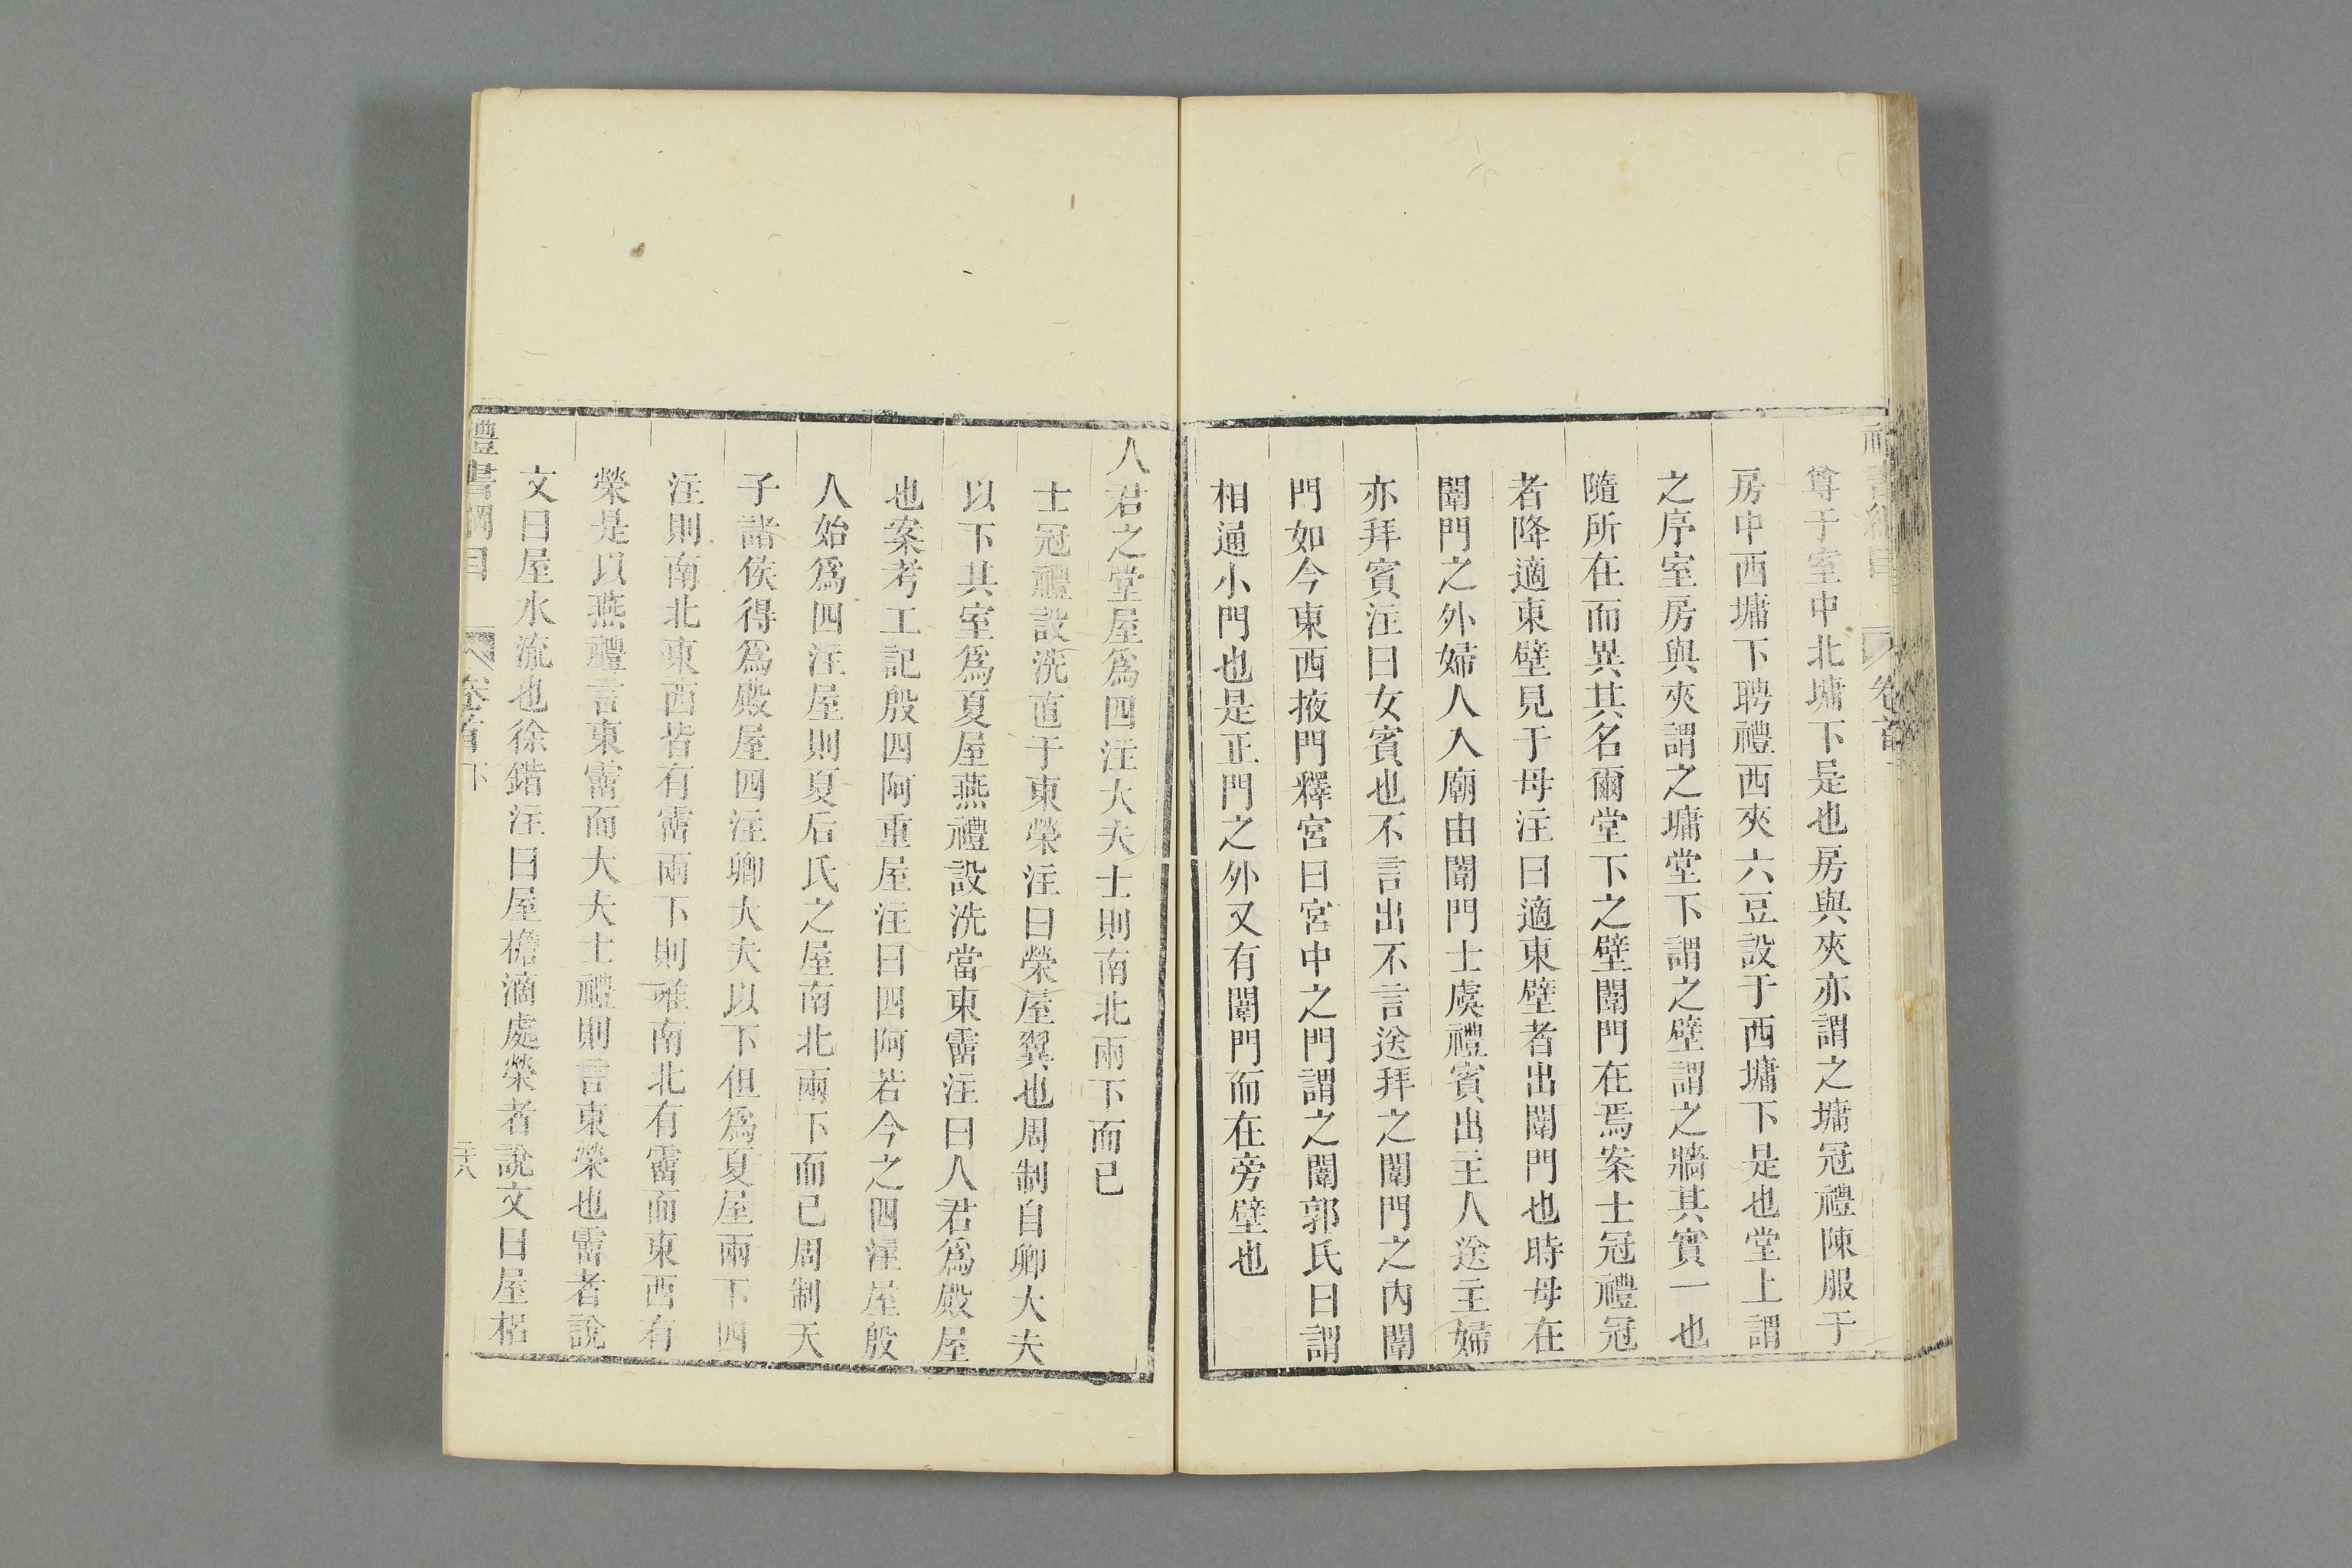 尊于室中北墉下是也房與夾亦謂之墉冠禮陳服于
房中西墉下聘禮西夾六豆設于西墉下是也堂上謂
之序室房與夾謂之墉堂下謂之壁謂之牆其實一也
隨所在而異其名爾堂下之壁闈門在焉案士冠禮冠
者降適東壁見于母注曰適東壁者出闈門也時母在
闈門之外婦人入廟由闈門士虞禮賓出主人送主婦
亦拜賓注曰女賓也不言出不言送拜之闈門之內闈
門如今東西掖門釋宮曰宮中之門謂之闈郭氏曰謂
相通小門也是正門之外又有闈門而在旁壁也
人君之堂屋爲四注大夫士則南北兩下而已
士冠禮設洗直于東榮注曰榮屋翼也周制自卿大夫
以下其室爲夏屋燕禮設洗當東霤注曰人君爲殿屋
也案考工記殷四阿重屋注曰四阿若今之四注屋殷
人始爲四注屋則夏后氏之屋南北兩下而已周制天
子諸侯得爲殿屋四注卿大夫以下但爲夏屋兩下四
注則南北東西皆有霤兩下則唯南北有霤而東西有
榮是以燕禮言東霤而大夫士禮則言東榮也霤者說
文曰屋水流也徐鍇注曰屋檐滴處榮者說文曰屋梠
禮書綱目 卷首下 二十八